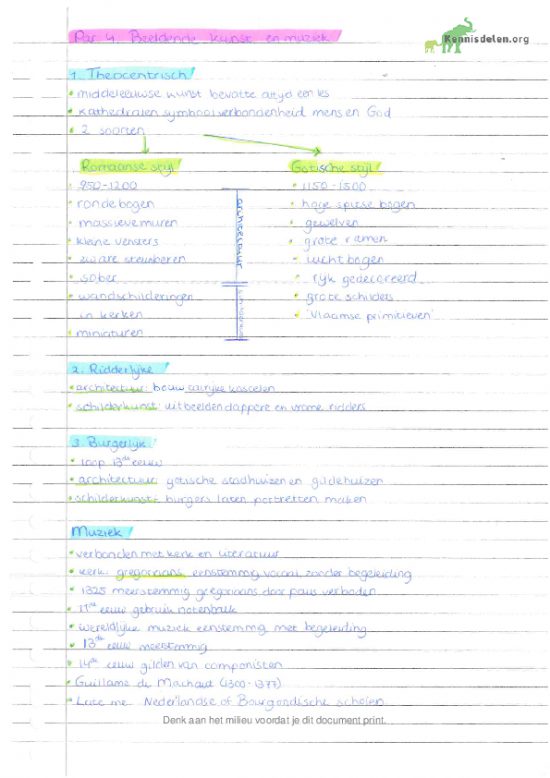 Par 4. Beeldende kunst en muziek
Kennisdelen.org
1. Theocentrisch
• middeleeuwse kunst bevatte altijd een les
• kathedralen symbool verbondenheid mens en God
• 2 soorten
Romaanse stijl
• 950-1200
• rondebogen
• massieve muren
• kleine vensters
• zware steunberen
• sober
• wandschilderingen
in kerken
• miniaturen
architectuur
Gotische stijl
• 1150-1500
• hoge spitse bogen
• gewelven
• grote ramen
• luchtbogen
• rijk gedecoreerd
• grote schilders
• 'Vlaamse primitieven'
2. Ridderlijke
• architectuur: bouw talrijke kastelen
• schilderkunst: uitbeelden dappere en vrome ridders
3. Burgerlijk
• loop 13de eeuw
• architectuur: gotische stadhuizen en gildehuizen
• schilderkunst: burgers laten portretten maken
Muziek
• verbonden met kerk en literatuur
• kerk: gregoriaans, eenstemmig vocaal zonder begeleiding
• 1325 meerstemmig gregoriaans door paus verboden
• 11de eeuw gebruik notenbalk
• wereldlijke muziek eenstemmig met begeleiding
• 13de eeuw meerstemmig
• 14de eeuw gilden van componisten
• Guillame de Machaut (1300-1377)
• Late me: Nederlandse of Bourgondische scholen
Denk aan het milieu voordat je dit document print.